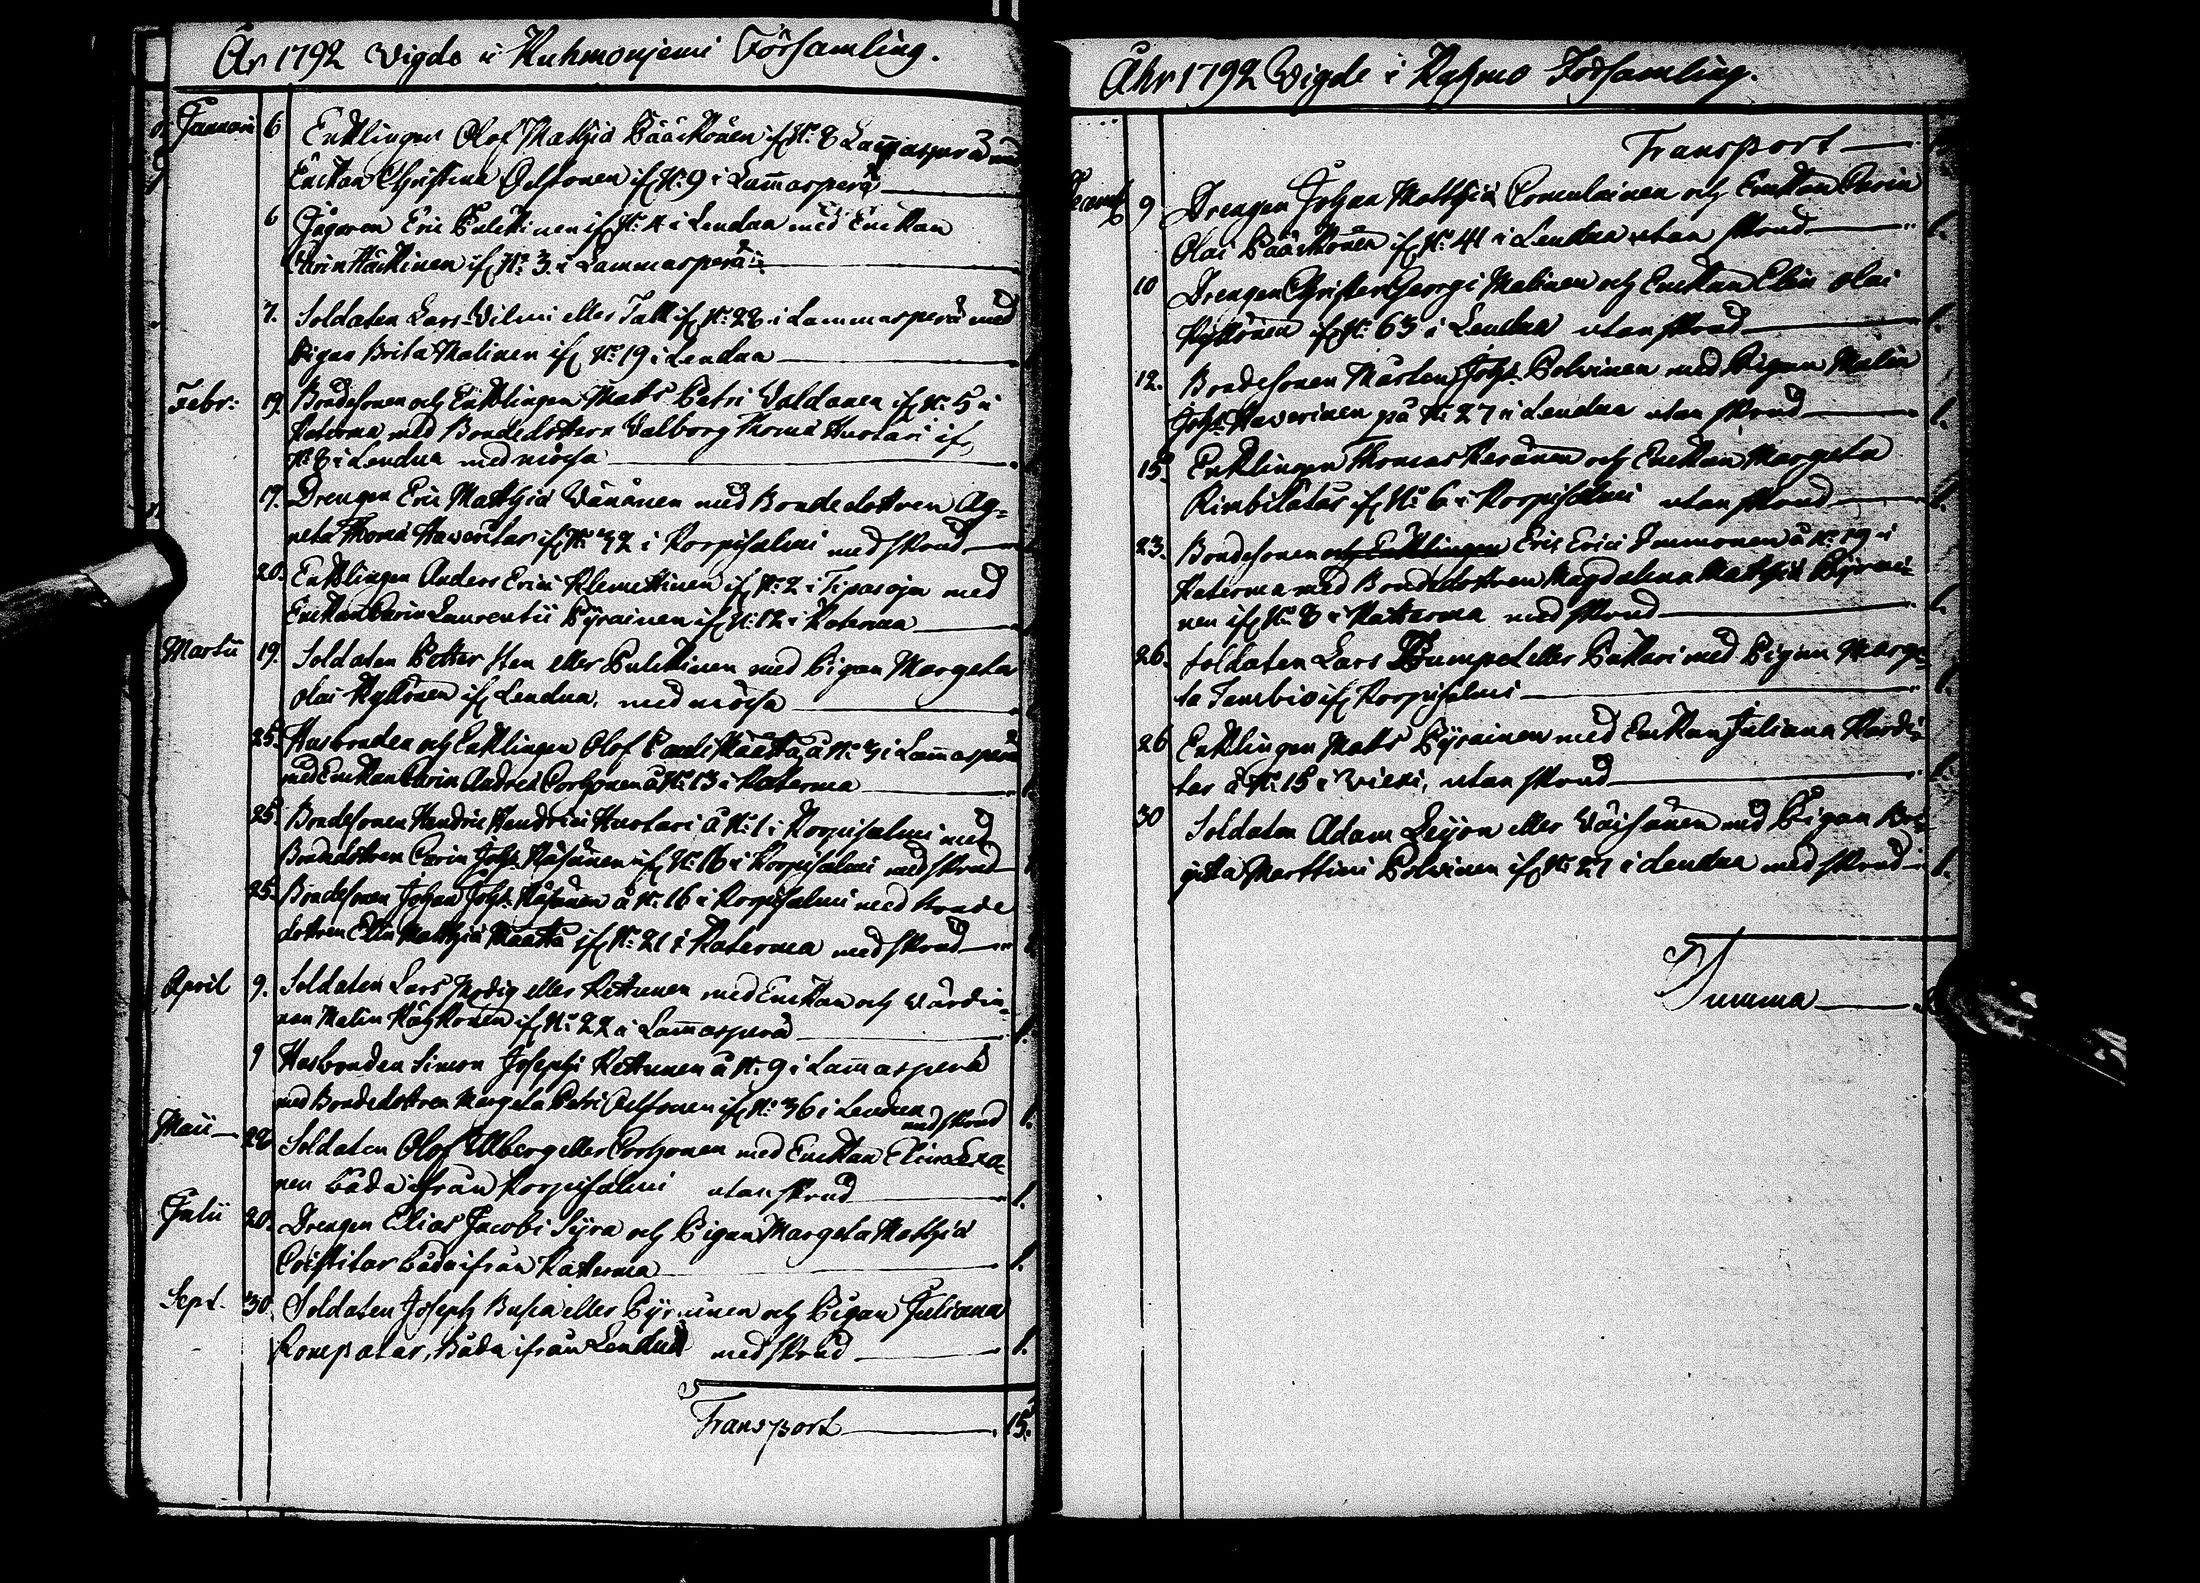 År 1792 Vigde i Kuhmoniemi Församling.
Januari 6 Enklingen Olof Mathiæ Pääckönen if. N:o 8 Lam̄asperä med
Enckan Christina Ockonen if. N:o 9 i Lam̄asperä
6 Jägaren Eric Pulckinen if. N:o 4 i Lendua med Enckan
Carin Häckinen if. N:o 3 i Lammasperä
7. Soldaten Lars Vilmi eller Tatt if. N:o 28 i Lammasperä med
Pigan Brita Malinen if. N:o 19 i Lendua
Febr: 19. Bondesonen och Enklingen Matts Petri Valdanen if. N:o 5 i
Katerma med Bondedottern Valborg Thomæ Hurtari if.
N:o 8 i Lendua med mössa
19. Drengen Eric Mathiæ Vänänen med Bondedottren Ag=
neta Thomæ Haveritar if. N:o 32 i Korpisalmi med skrud
20. Enklingen Anders Erici Klemettinen if. N:o 2 i Tipasoja med
Enckan Carin Laurentii Pyrainen if. N:o 12 i Katerma
Martii 19. Soldaten Petter Sten eller Pulckinen med Pigan Margeta
Olai Kyllönen if. Lendua, med mössa
25. Husbonden och Enklingen Olof Pauli Määttä å N:o 3 i Lam̄asperä
med Enckan Carin Andreæ Corhonen å N:o 13 i Katerma 1.
25. Bondesonen Hendric Hendrici Hurtari å N:o 1 i Korpisalmi med
Bondedottren Carin Joh: Räsänen if. N:o 16 i Korpisalmi med skrud
25. Bondesonen Johan Joh: Räsänen å N:o 16 i Korpisalmi med Bonde
dottren Elin Mathiæ Määttä if. N:o 21 i Katerma med skrud
April 9. Soldaten Lars Modig eller Kettunen med Enckan och Värdin=
nan Malin Häyrönen if. N:o 22 i Lam̄asperä 1.
9 Husbonden Simon Josephi Kettunen å N:o 9 i Lam̄asperä
med Bondedottren Margeta Petri if. N:o 36 i Lendua med skrud 1.
Maii 28 Soldaten Olof Ulberg eller Corhonen med Enckan Elin
nen båda ifrån Korpisalmi utan skrud 1.
Julii 20. Drengen Elias Jacobi Syra och Pigan Margeta Mathiæ
båda ifrån Katterma 1.
Sept. 30. Soldaten Joseph Busca eller Pyrainen och Pigan Juliana
Rompatar, Båda ifrån Lendua med skrud 1.
Transport 15.
Åhr 1792 Vigde i Kuhmo Församling.
Transport
Decemb 9 Drengen Johan Mathiæ Comulainen och Enckan Carin
Olai Pääckönen if. N:o 41 i Lendua utan skrud 1.
10 Drengen Christer Georgi Malinen och Enckan Elin Olai
Kyllönen if. N:o 63 i Lendua utan skrud 1.
12. Bondesonen Mårten Joh: Polvinen med Pigan Malin
Joh: Haverinen på N:o 27 i Lendua utan skrud 1.
15. Enklingen Thomas Keränen och Enckan Margeta
Rimbilätär if. N:o 6 i Korpisalmi utan skrud 1.
23. Bondesonen och Enklingen Eric Erici Immonen å N:o 19 i
Katerma med Bondedottren Magdalena Mathiæ Pyrai=
nen if. N:o 8 i Katterma med skrud 1.
26. Soldaten Lars Trumpet eller Piittari med Pigan Marge=
ta Tambio if. Korpisalmi 1.
26 Enklingen Matts Pyrainen med Enckan Juliana
tar å N:o 15 i Vieki, utan skrud 1.
30 Soldaten Adam Leijon eller Väisänen med Pigan Bri=
gitta Martini Polvinen if. N:o 27 i Lendua med skrud 1.
Summa